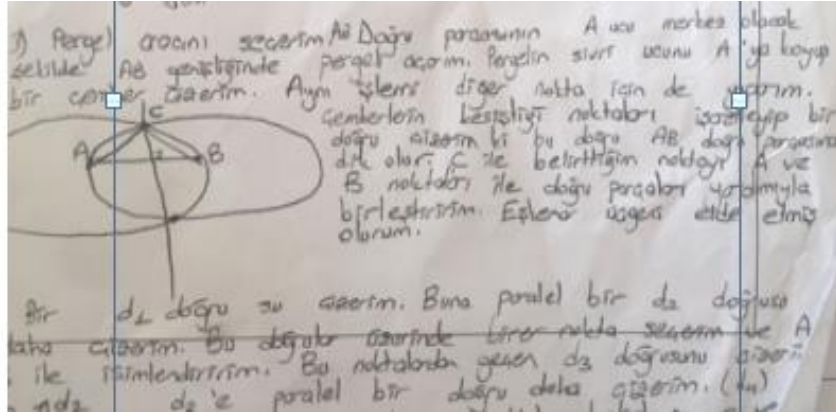 1) Pergel aracını seçerim AB Doğru parçasının A ucu merkez olacak
şekilde AB genişliğinde pergel açarım. Pergelin sivri ucunu A'ya koyup
bir çember çizerim. Aynı işlemi diğer nokta için de yaparım.
Çemberlerin kesiştiği noktaları işaretleyip bir
doğru çizerim ki bu doğru AB doğru parçasına
dik olur. C ile belirttiğim noktayı A ve
B noktaları ile doğru parçaları yardımıyla
birleştiririm. Eşkenar üçgen elde etmiş
olurum.
C
A
B
Bir d1 doğru su çizerim. Buna paralel bir d2 doğrusu
daha çizerim. Bu doğrular üzerinde birer nokta seçerim ve A
ile isimlendiririm. Bu noktalardan geçen d3 doğrusunu çizerim
d2 'e paralel bir doğru daha çizerim. (d4)